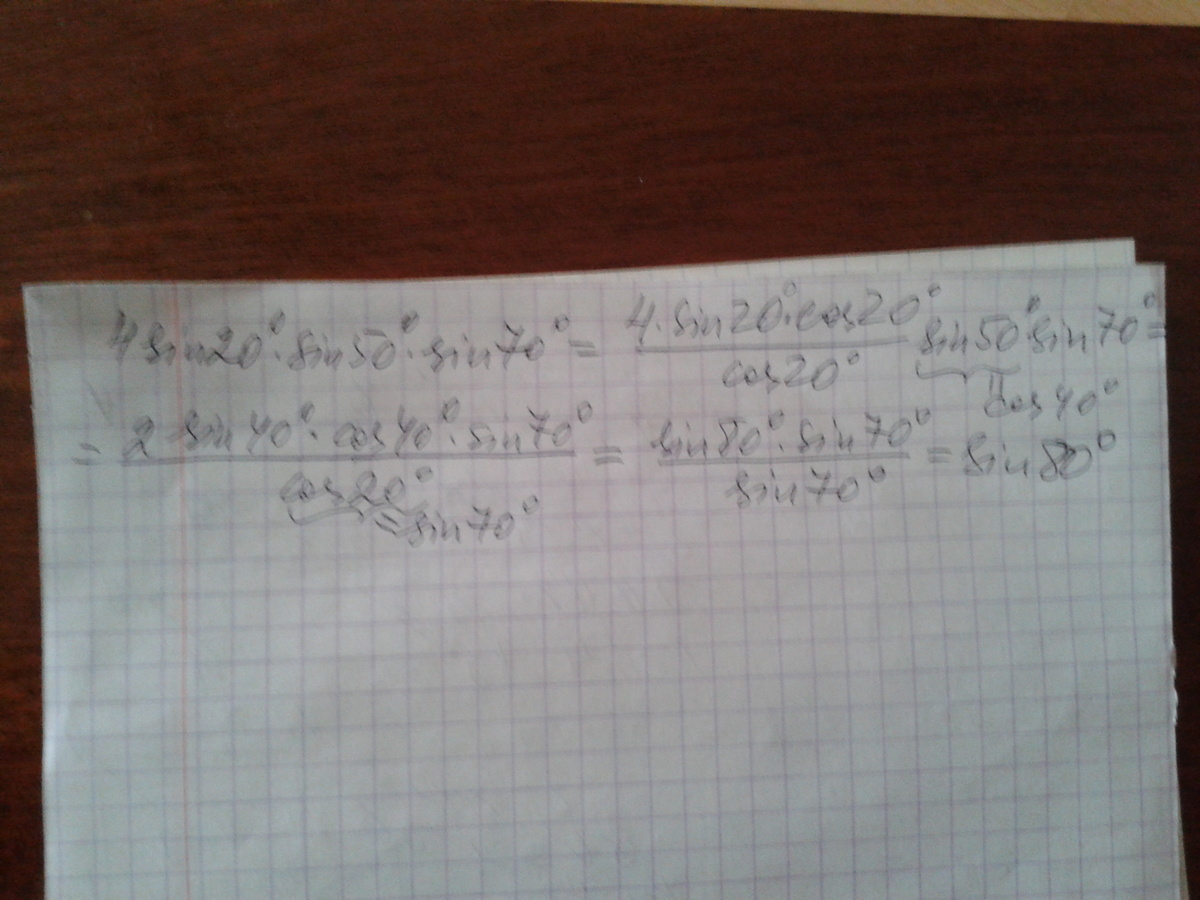 4 sin20° · sin50° · sin70° = 4 · sin20° · cos20° / cos20° sin50° · sin70° =
cos40°
= 2 sin40° · cos40° · sin70° / cos20° = sin80° · sin70° / sin70° = sin80°
= sin70°